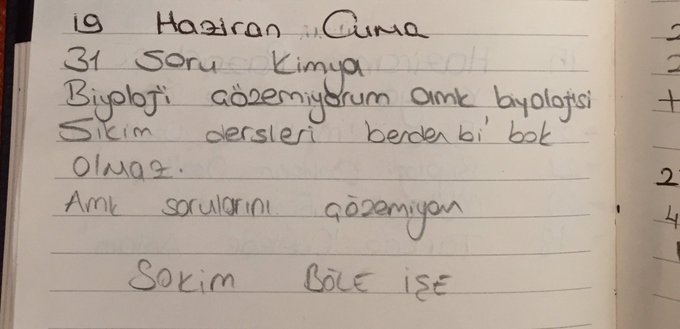 19 Haziran Cuma
31 soru kimya
Biyoloji çözemiyorum amk byolojisi
Sikim dersleri benden bi' bok
olmaz.
Amk sorularını çözemiyom
Sokim BÖLE İŞE
2
2
+
2
4